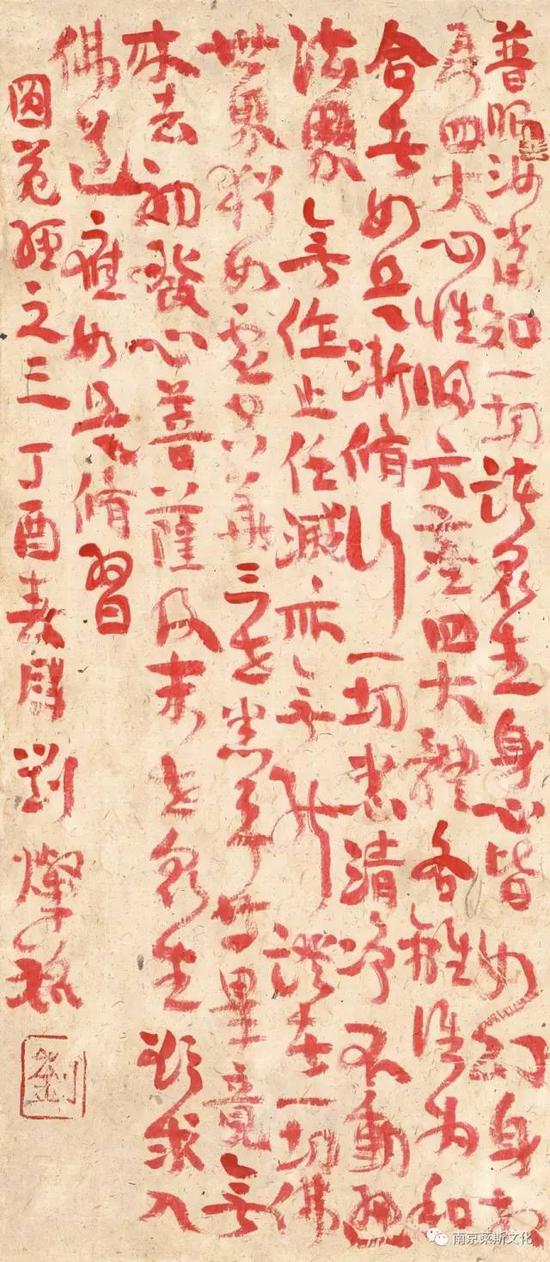 普眼汝當知一切諸衆生身心皆如幻身相
屬四大心性歸六塵四大體各離誰为和
合者如是漸脩行一切悉清淨不動遍
法界無作止任滅亦無能證者一切佛
世界猶如虛空華三世悉平等畢竟無
來去初發心菩薩及末世衆生欲求入
佛道應如是脩習
圓覺經之三丁酉春月劉燦銘
劉
南京莱斯文化